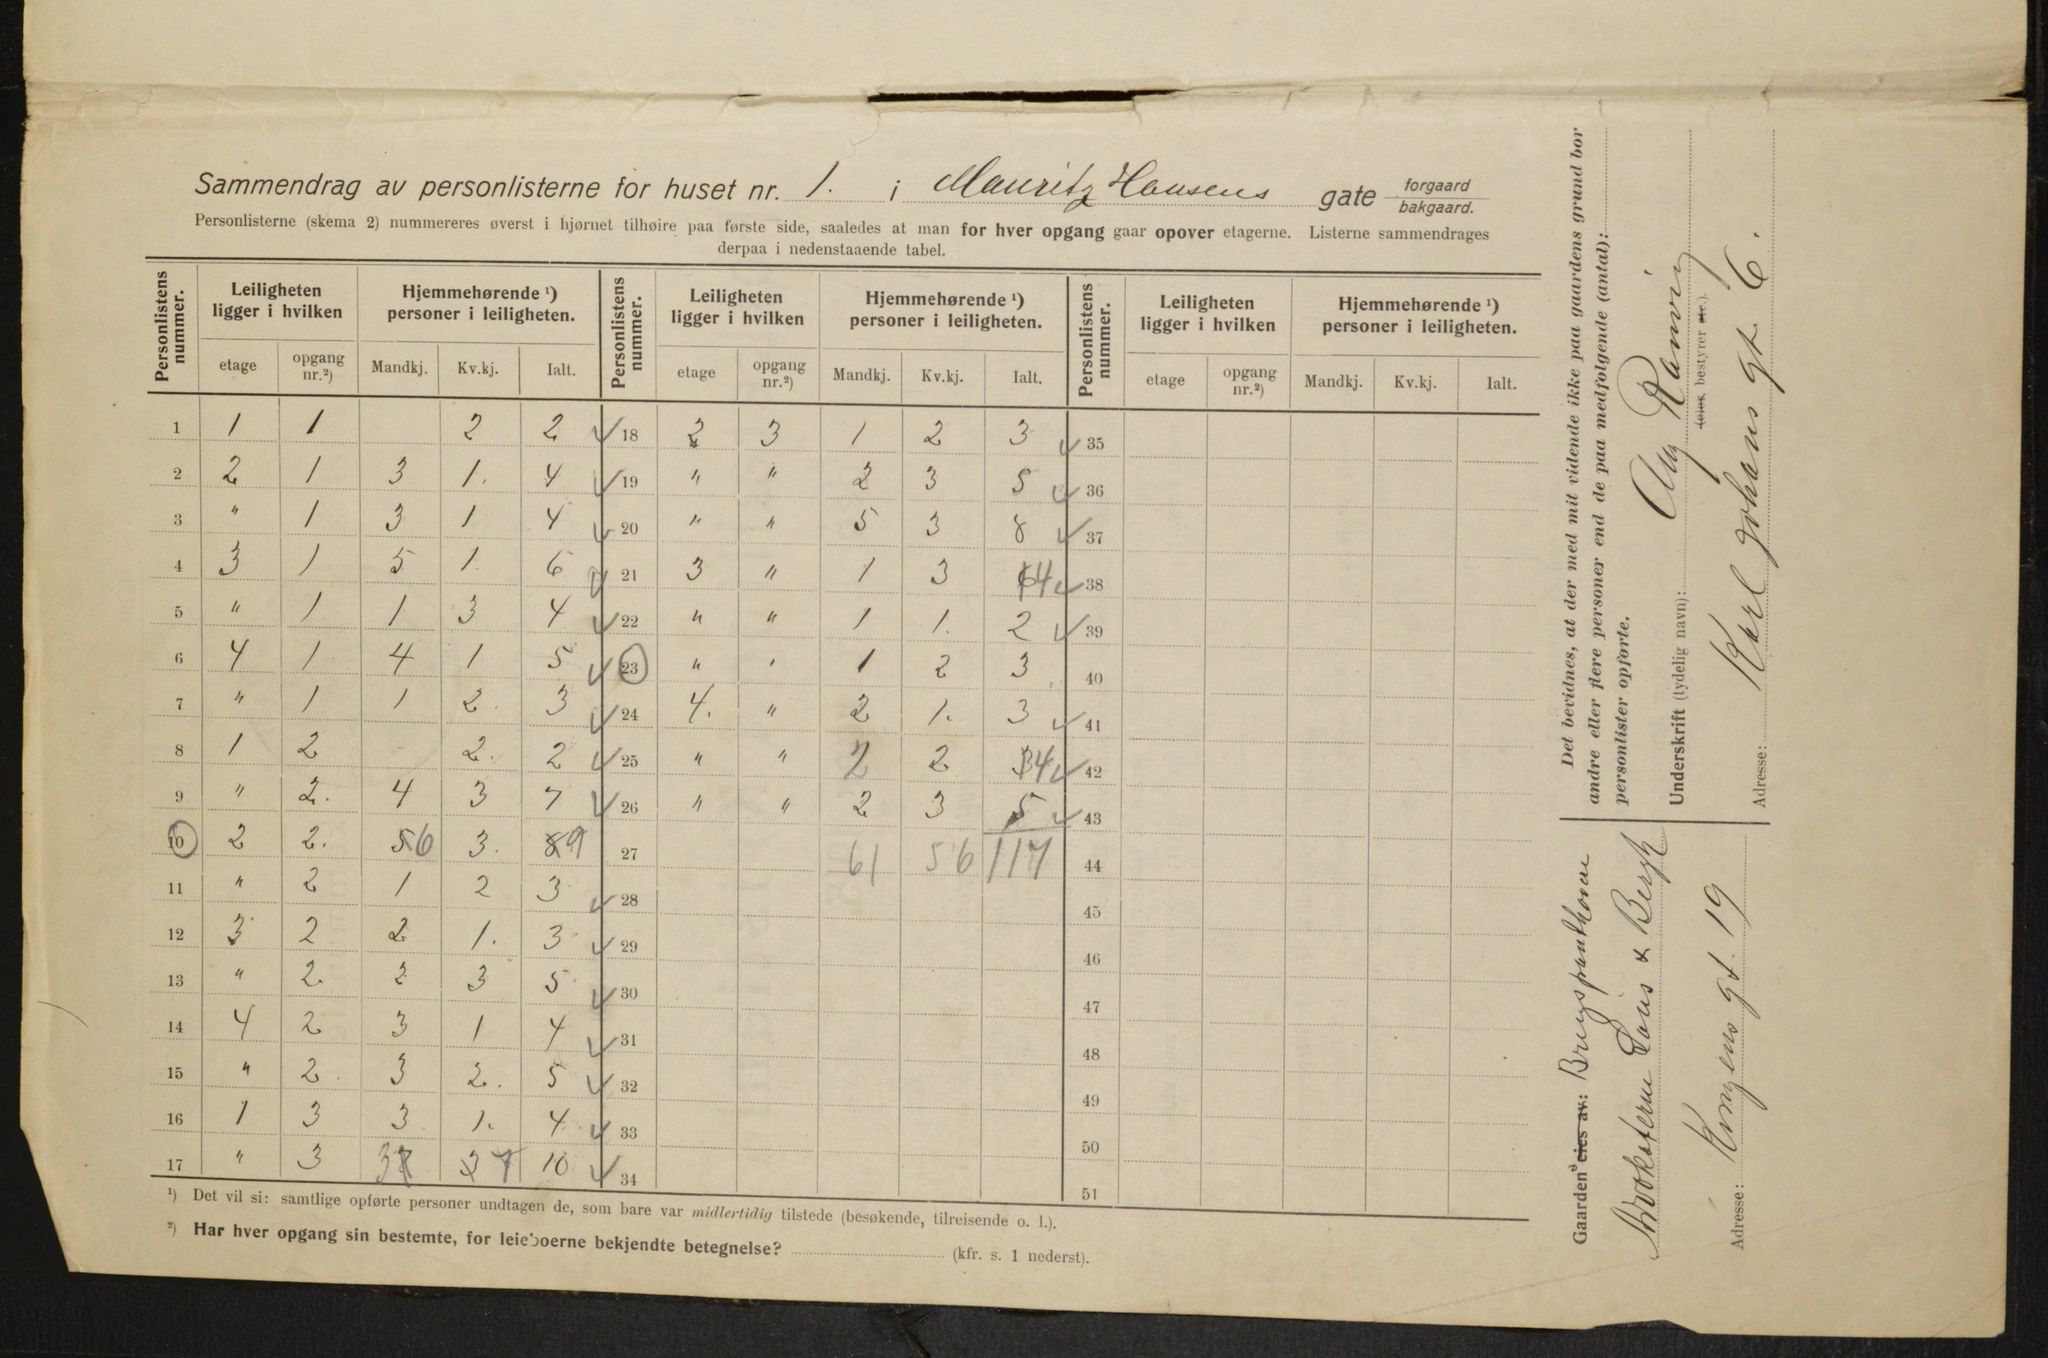 Sammendrag av personlisterne for huset nr. 1. i Mauritz Hansens gate forgaard bakgaard.
Personlisterne (skema 2) nummereres øverst i hjørnet tilhøire paa første side, saaledes at man for hver opgang gaar opover etagerne. Listerne sammendrages
derpaa i nedenstaaende tabel.
Personlistens nummer. Leiligheten ligger i hvilken Hjemmehørende ¹) personer i leiligheten. Personlistens nummer. Leiligheten ligger i hvilken Hjemmehørende ¹) personer i leiligheten. Personlistens nummer. Leiligheten ligger i hvilken Hjemmehørende ¹) personer i leiligheten.
etage opgang nr.²) Mandkj. Kv.kj. Ialt. etage opgang nr.²) Mandkj. Kv.kj. Ialt. etage opgang nr.²) Mandkj. Kv.kj. Ialt.
1 1 1 2 2 ✓ 18 2 3 1 2 3 ✓ 35
2 2 1 3 1. 4 ✓ 19 " " 2 3 5 ✓ 36
3 " 1 3 1 4 ✓ 20 " " 5 3 8 ✓ 37
4 3 1 5 1. 6 ✓ 21 3 " 1 3 4 ✓ 38
5 " 1 1 3 4 ✓ 22 " " 1 1. 2 ✓ 39
6 4 1 4 1 5 ✓ 23 " " 1 2 3 40
7 " 1 1 2. 3 ✓ 24 4. " 2 1. 3 ✓ 41
8 1 2 2. 2 ✓ 25 " " 2 2 34 ✓ 42
9 " 2. 4 3 7 ✓ 26 " " 2 3 5 ✓ 43
10 2 2. 56 3. 89 27 61 56 117 44
11 " 2 1 2 3 ✓ 28 45
12 3 2 2 1. 3 ✓ 29 46
13 " 2 2 3 5 ✓ 30 47
14 4 2 3 1 4 ✓ 31 48
15 " 2. 3 2. 5 ✓ 32 49
16 1 3 3 1. 4 ✓ 33 50
17 " 3 3 37 10 ✓ 34 51
¹) Det vil si: samtlige opførte personer undtagen de, som bare var midlertidig tilstede (besøkende, tilreisende o. l.).
²) Har hver opgang sin bestemte, for leieboerne bekjendte betegnelse? (kfr. s. 1 nederst).
Det bevidnes, at der med mit vidende ikke paa gaardens grund bor
andre eller flere personer end de paa medfølgende (antal):
personlister opførte.
Underskrift (tydelig navn): Aug
(eies, bestyrer etc.).
Adresse: Karl Johans gt. 6.
Gaarden eies av:
& 
Adresse: Kongens gt. 19